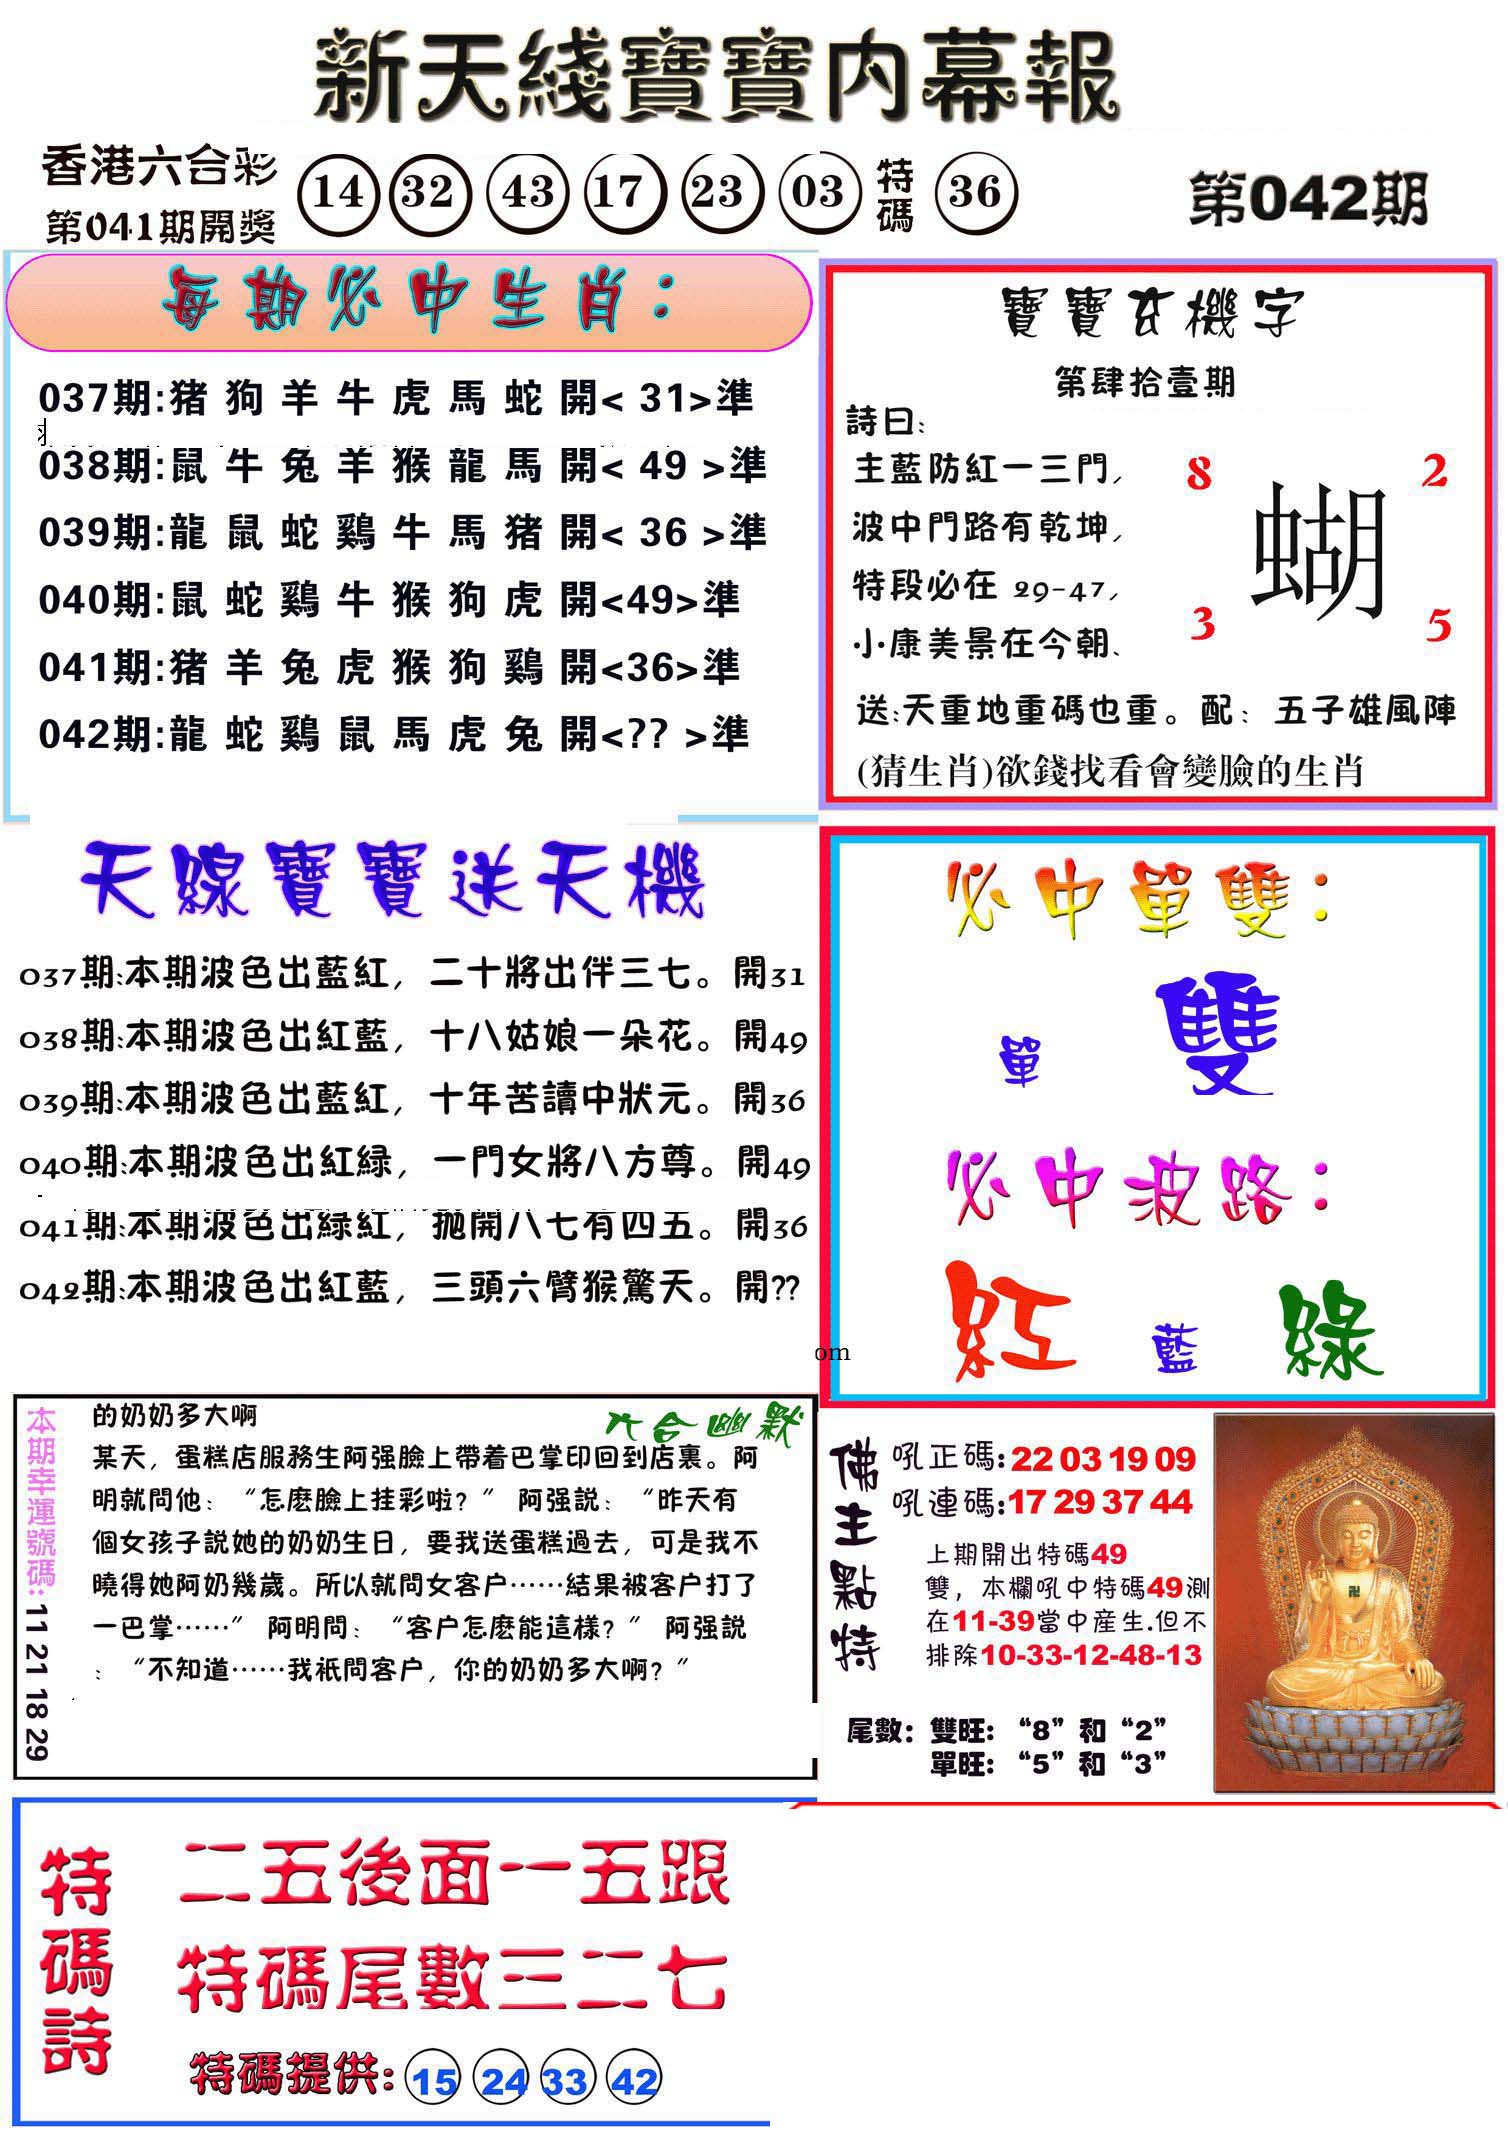 新天綫寶寶内幕報
香港六合彩
第041期開獎
14 32 43 17 23 03 特碼 36
第042期
每期必中生肖：
037期:猪狗羊牛虎馬蛇開< 31>準
038期:鼠牛兔羊猴龍馬開< 49 >準
039期:龍鼠蛇鷄牛馬猪開< 36 >準
040期:鼠蛇鷄牛猴狗虎開<49>準
041期:猪羊兔虎猴狗鷄開<36>準
042期:龍蛇鷄鼠馬虎兔開<?? >準
寶寶玄機字
第肆拾壹期
詩曰:
主藍防紅一三門,
波中門路有乾坤,
特段必在 29-47,
小康美景在今朝、
8 2
蝴
3 5
送:天重地重碼也重。配：五子雄風陣
(猜生肖)欲錢找看會變臉的生肖
天線寶寶送天機
037期:本期波色出藍紅，二十將出伴三七。開31
038期:本期波色出紅藍，十八姑娘一朵花。開49
039期:本期波色出藍紅，十年苦讀中狀元。開36
040期:本期波色出紅緑，一門女將八方尊。開49
041期:本期波色出緑紅，抛開八七有四五。開36
042期:本期波色出紅藍，三頭六臂猴驚天。開??
必中單雙：
單 雙
必中波路：
紅 藍 綠
om
本期幸運號碼:11 21 18 29
六合幽默
的奶奶多大啊
某天，蛋糕店服務生阿强臉上帶着巴掌印回到店裏。阿
明就問他：“怎麽臉上挂彩啦？” 阿强説：“昨天有
個女孩子説她的奶奶生日，要我送蛋糕過去，可是我不
曉得她阿奶幾歲。所以就問女客户……結果被客户打了
一巴掌……” 阿明問：“客户怎麽能這樣？” 阿强説
：“不知道……我衹問客户，你的奶奶多大啊？”
佛主點特
吼正碼:22 03 19 09
吼連碼:17 29 37 44
上期開出特碼49
雙，本欄吼中特碼49測
在11-39當中産生.但不
排除10-33-12-48-13
尾數：雙旺：“8”和“2”
單旺：“5”和“3”
特碼詩
二五後面一五跟
特碼尾數三二七
特碼提供: 15 24 33 42